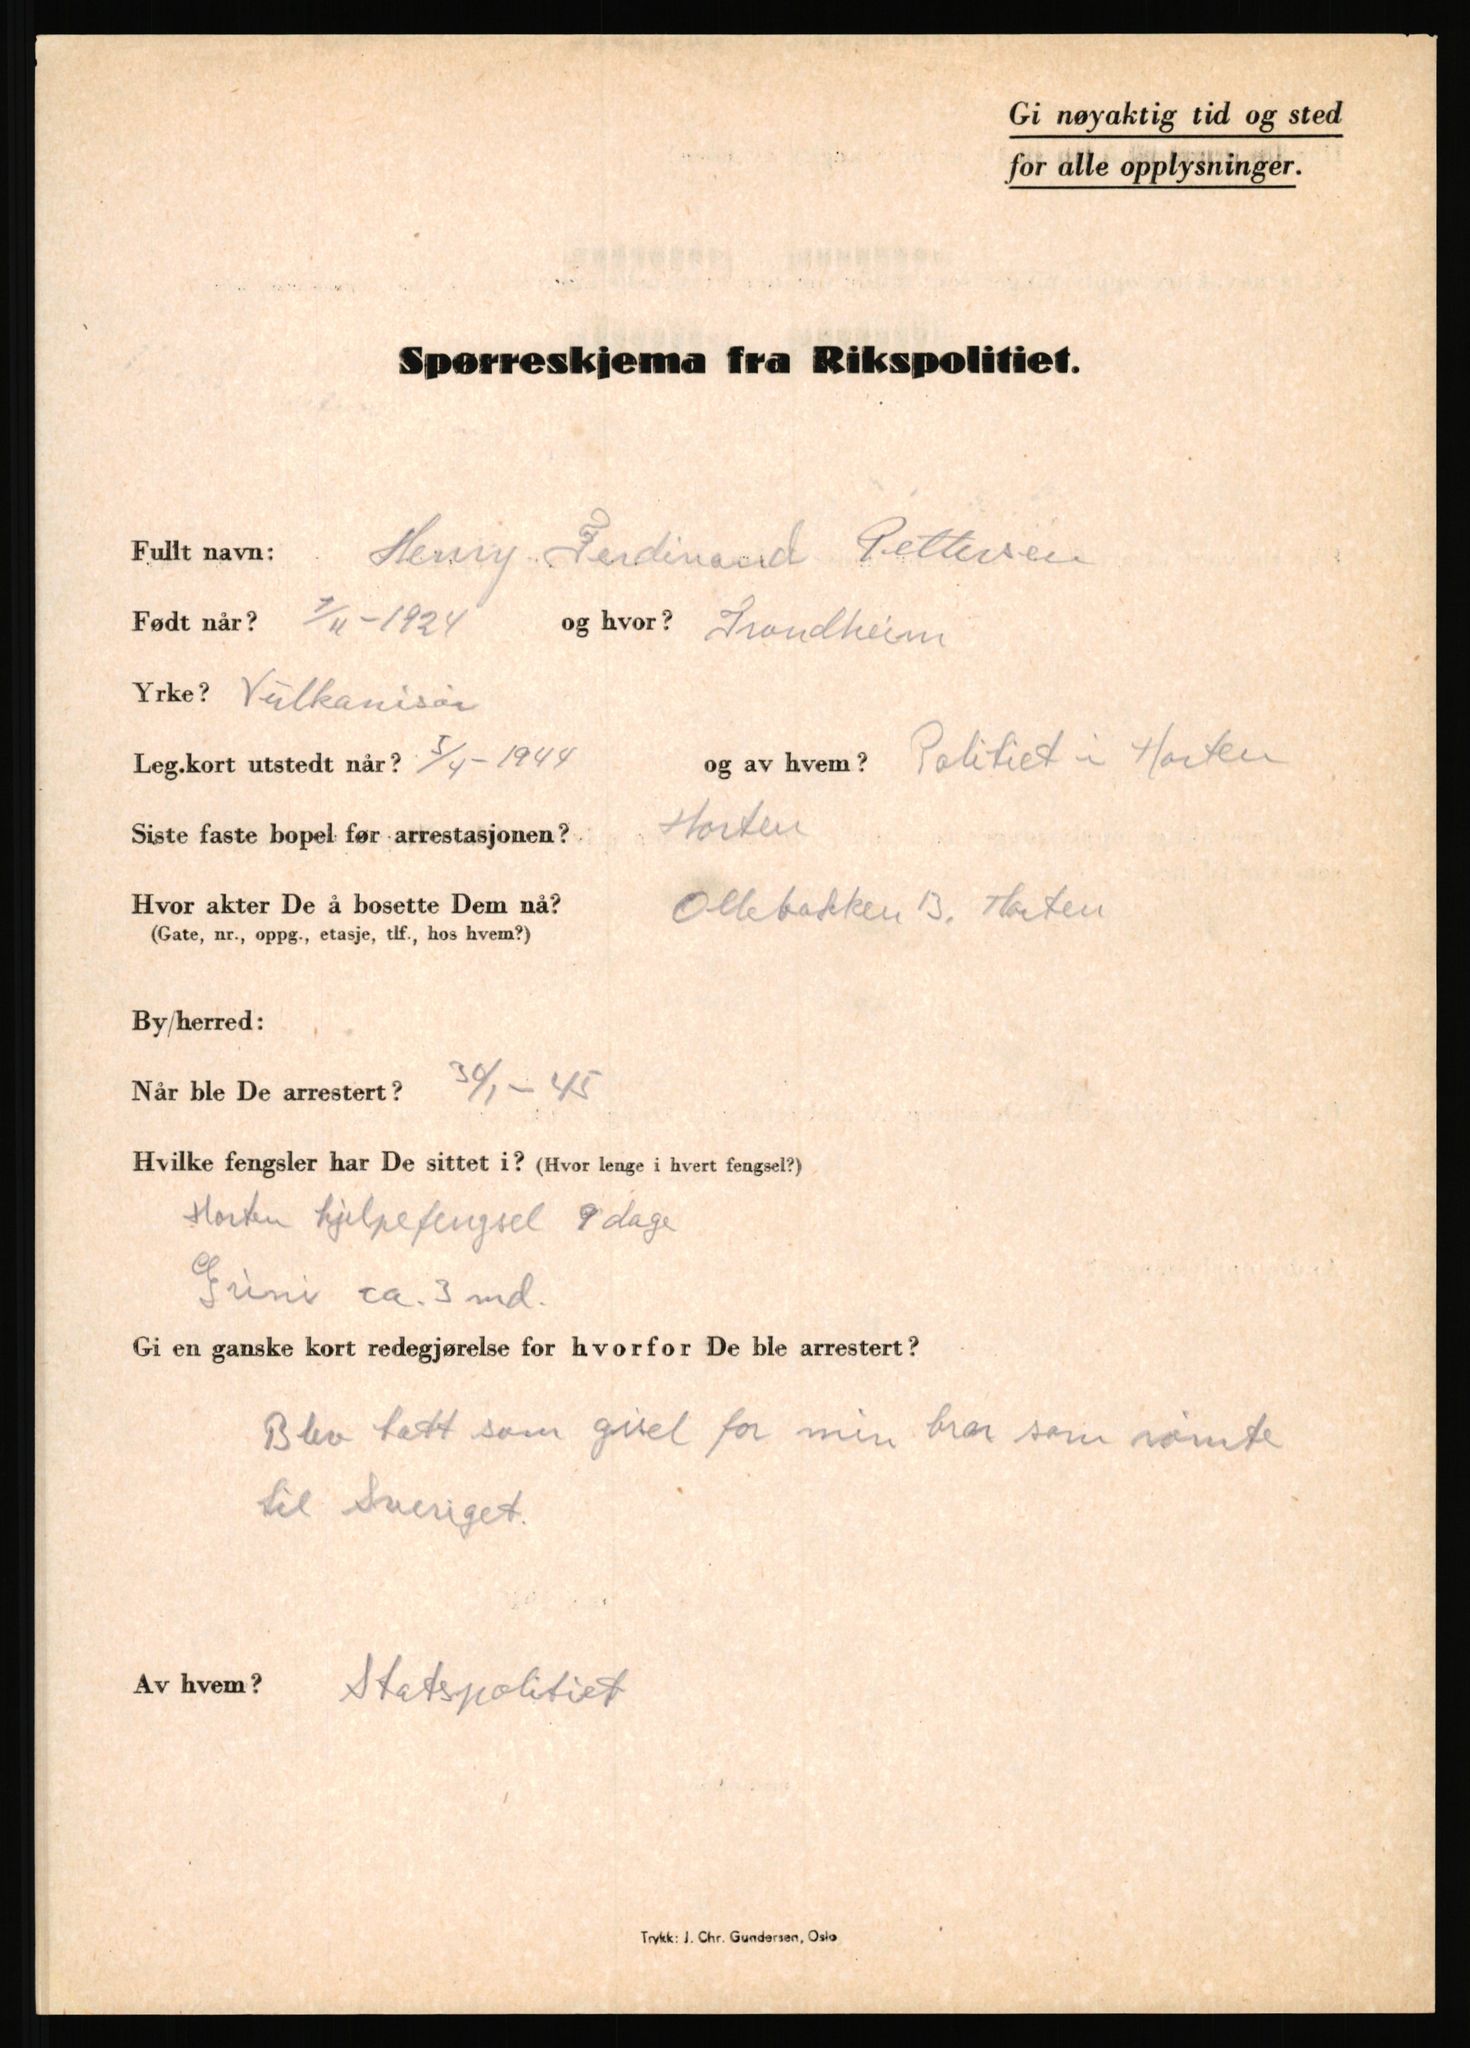 Gi nøyaktig tid og sted
for alle opplysninger.
Spørreskjema fra Rikspolitiet.
Fullt navn: Henry Ferdinand Pettersen
Født når? 7/11-1924 og hvor? Trondheim
Yrke? Vulkanisør
Leg.kort utstedt når? 5/4-1944 og av hvem? Politiet i Horten
Siste faste bopel før arrestasjonen? Horten
Hvor akter De å bosette Dem nå? Ollebakken 13. Horten
(Gate, nr., oppg., etasje, tlf., hos hvem?)
By/herred:
Når ble De arrestert? 30/1-45
Hvilke fengsler har De sittet i? (Hvor lenge i hvert fengsel?)
Horten hjelpefengsel 9 dage
Grini ca. 3 md.
Gi en ganske kort redegjørelse for hvorfor De ble arrestert?
Blev tatt som gisel for min bror som rømte
til Sveriget.
Av hvem? Statspolitiet
Trykk: J. Chr. Gundersen, Oslo